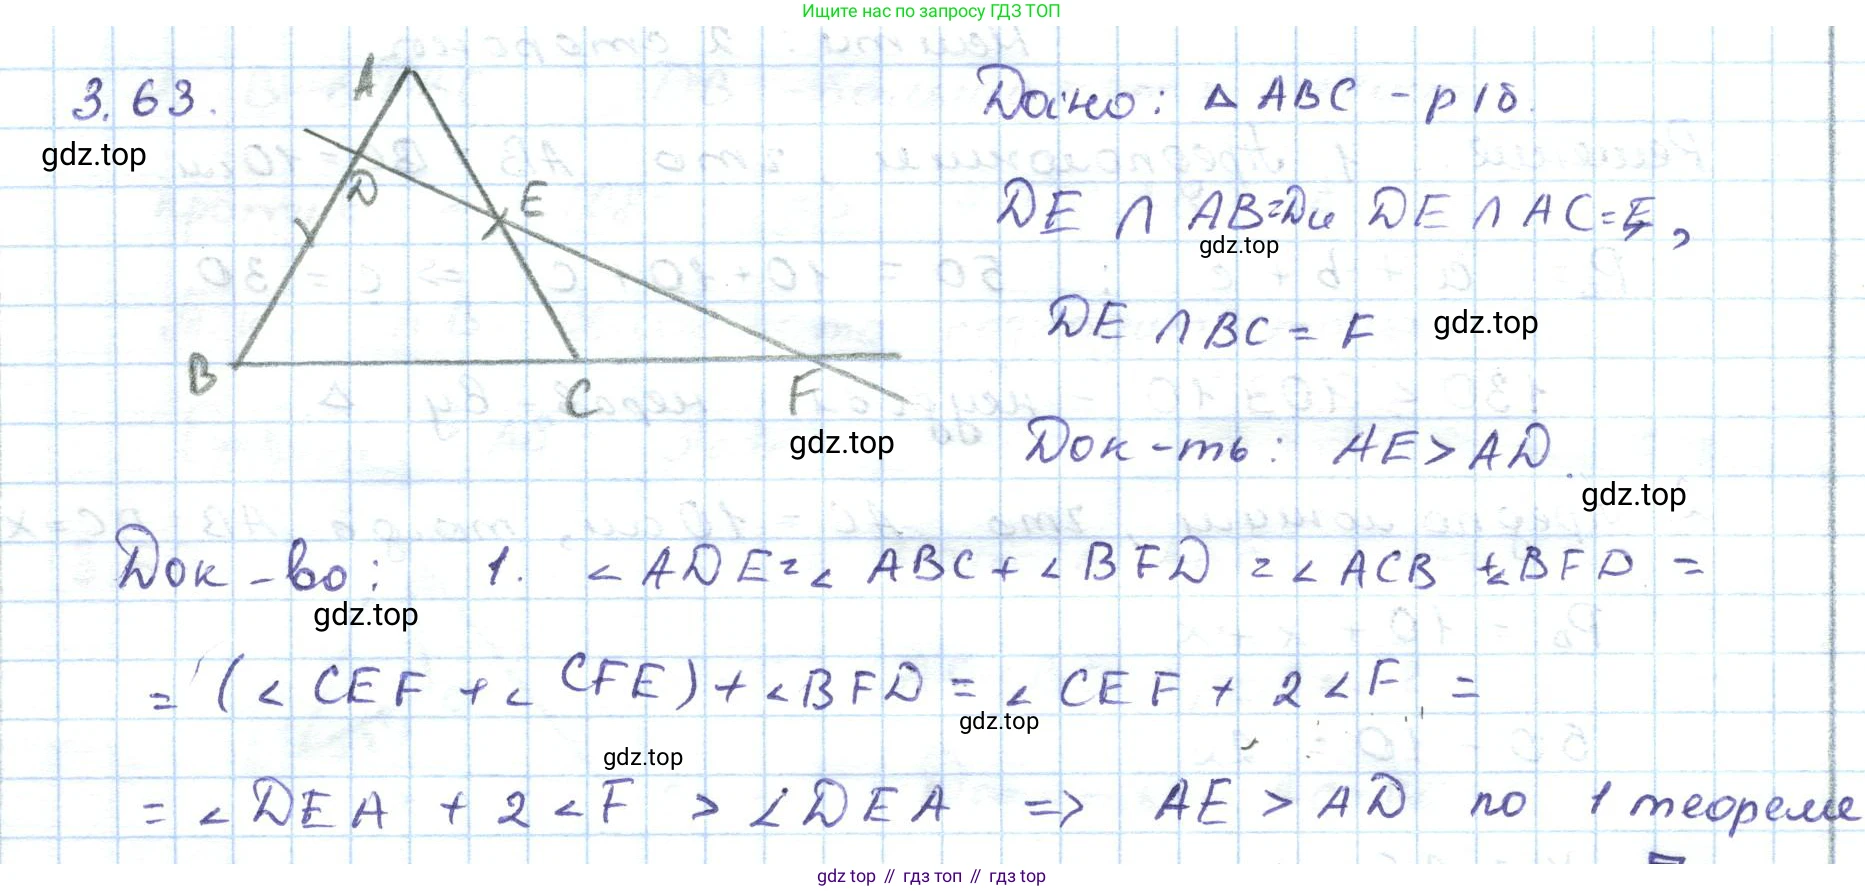 Ищите нас по запросу ГДЗ ТОП
3.63.
gdz.top
A
D
E
B
C
F
gdz.top
Дано: △ ABC - р/б.
DE ∩ AB=D и DE ∩ AC=E,
gdz.top
DE ∩ BC = F
gdz.top
Док-ть: AE > AD.
gdz.top
Док-во: 1. ∠ADE=∠ABC+∠BFD=∠ACB+∠BFD=
gdz.top
= (∠CEF+∠CFE)+∠BFD=∠CEF+2∠F=
gdz.top
gdz.top
=∠DEA+2∠F>∠DEA => AE>AD по 1 теореме
gdz top // гдз топ // гдз top